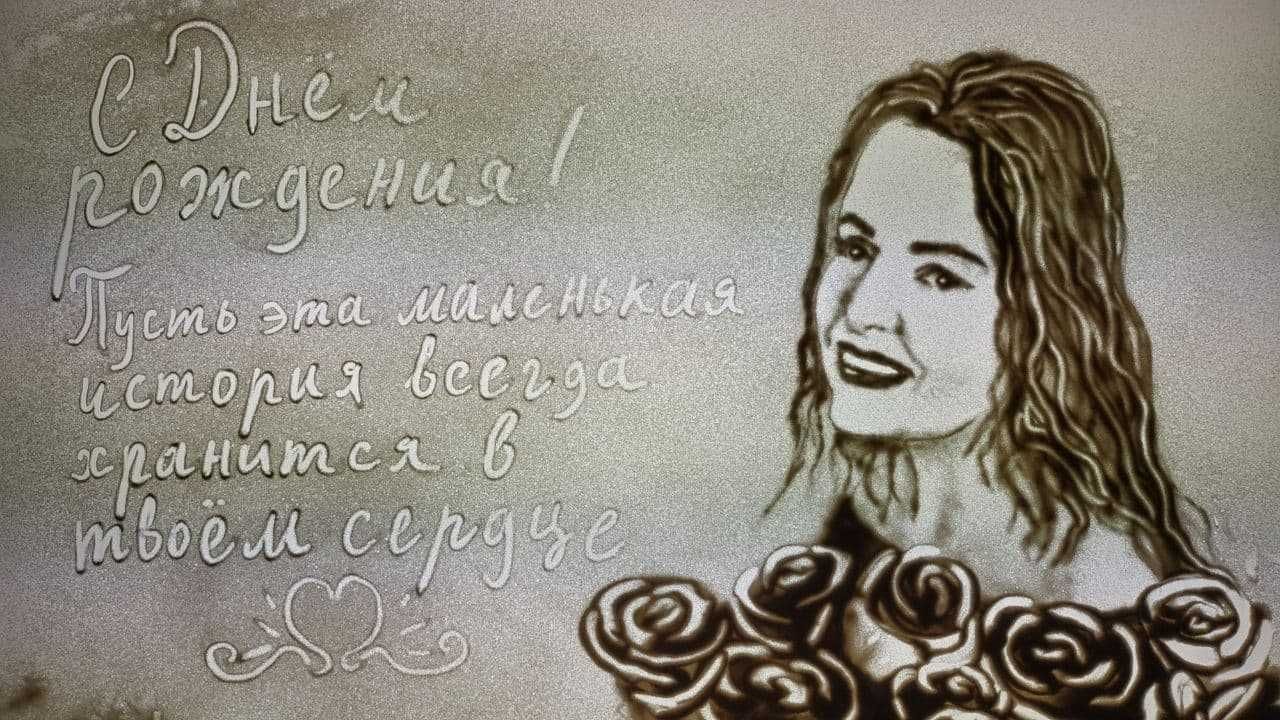 С Днём
рождения!
Пусть эта маленькая
история всегда
хранится в
твоём сердце